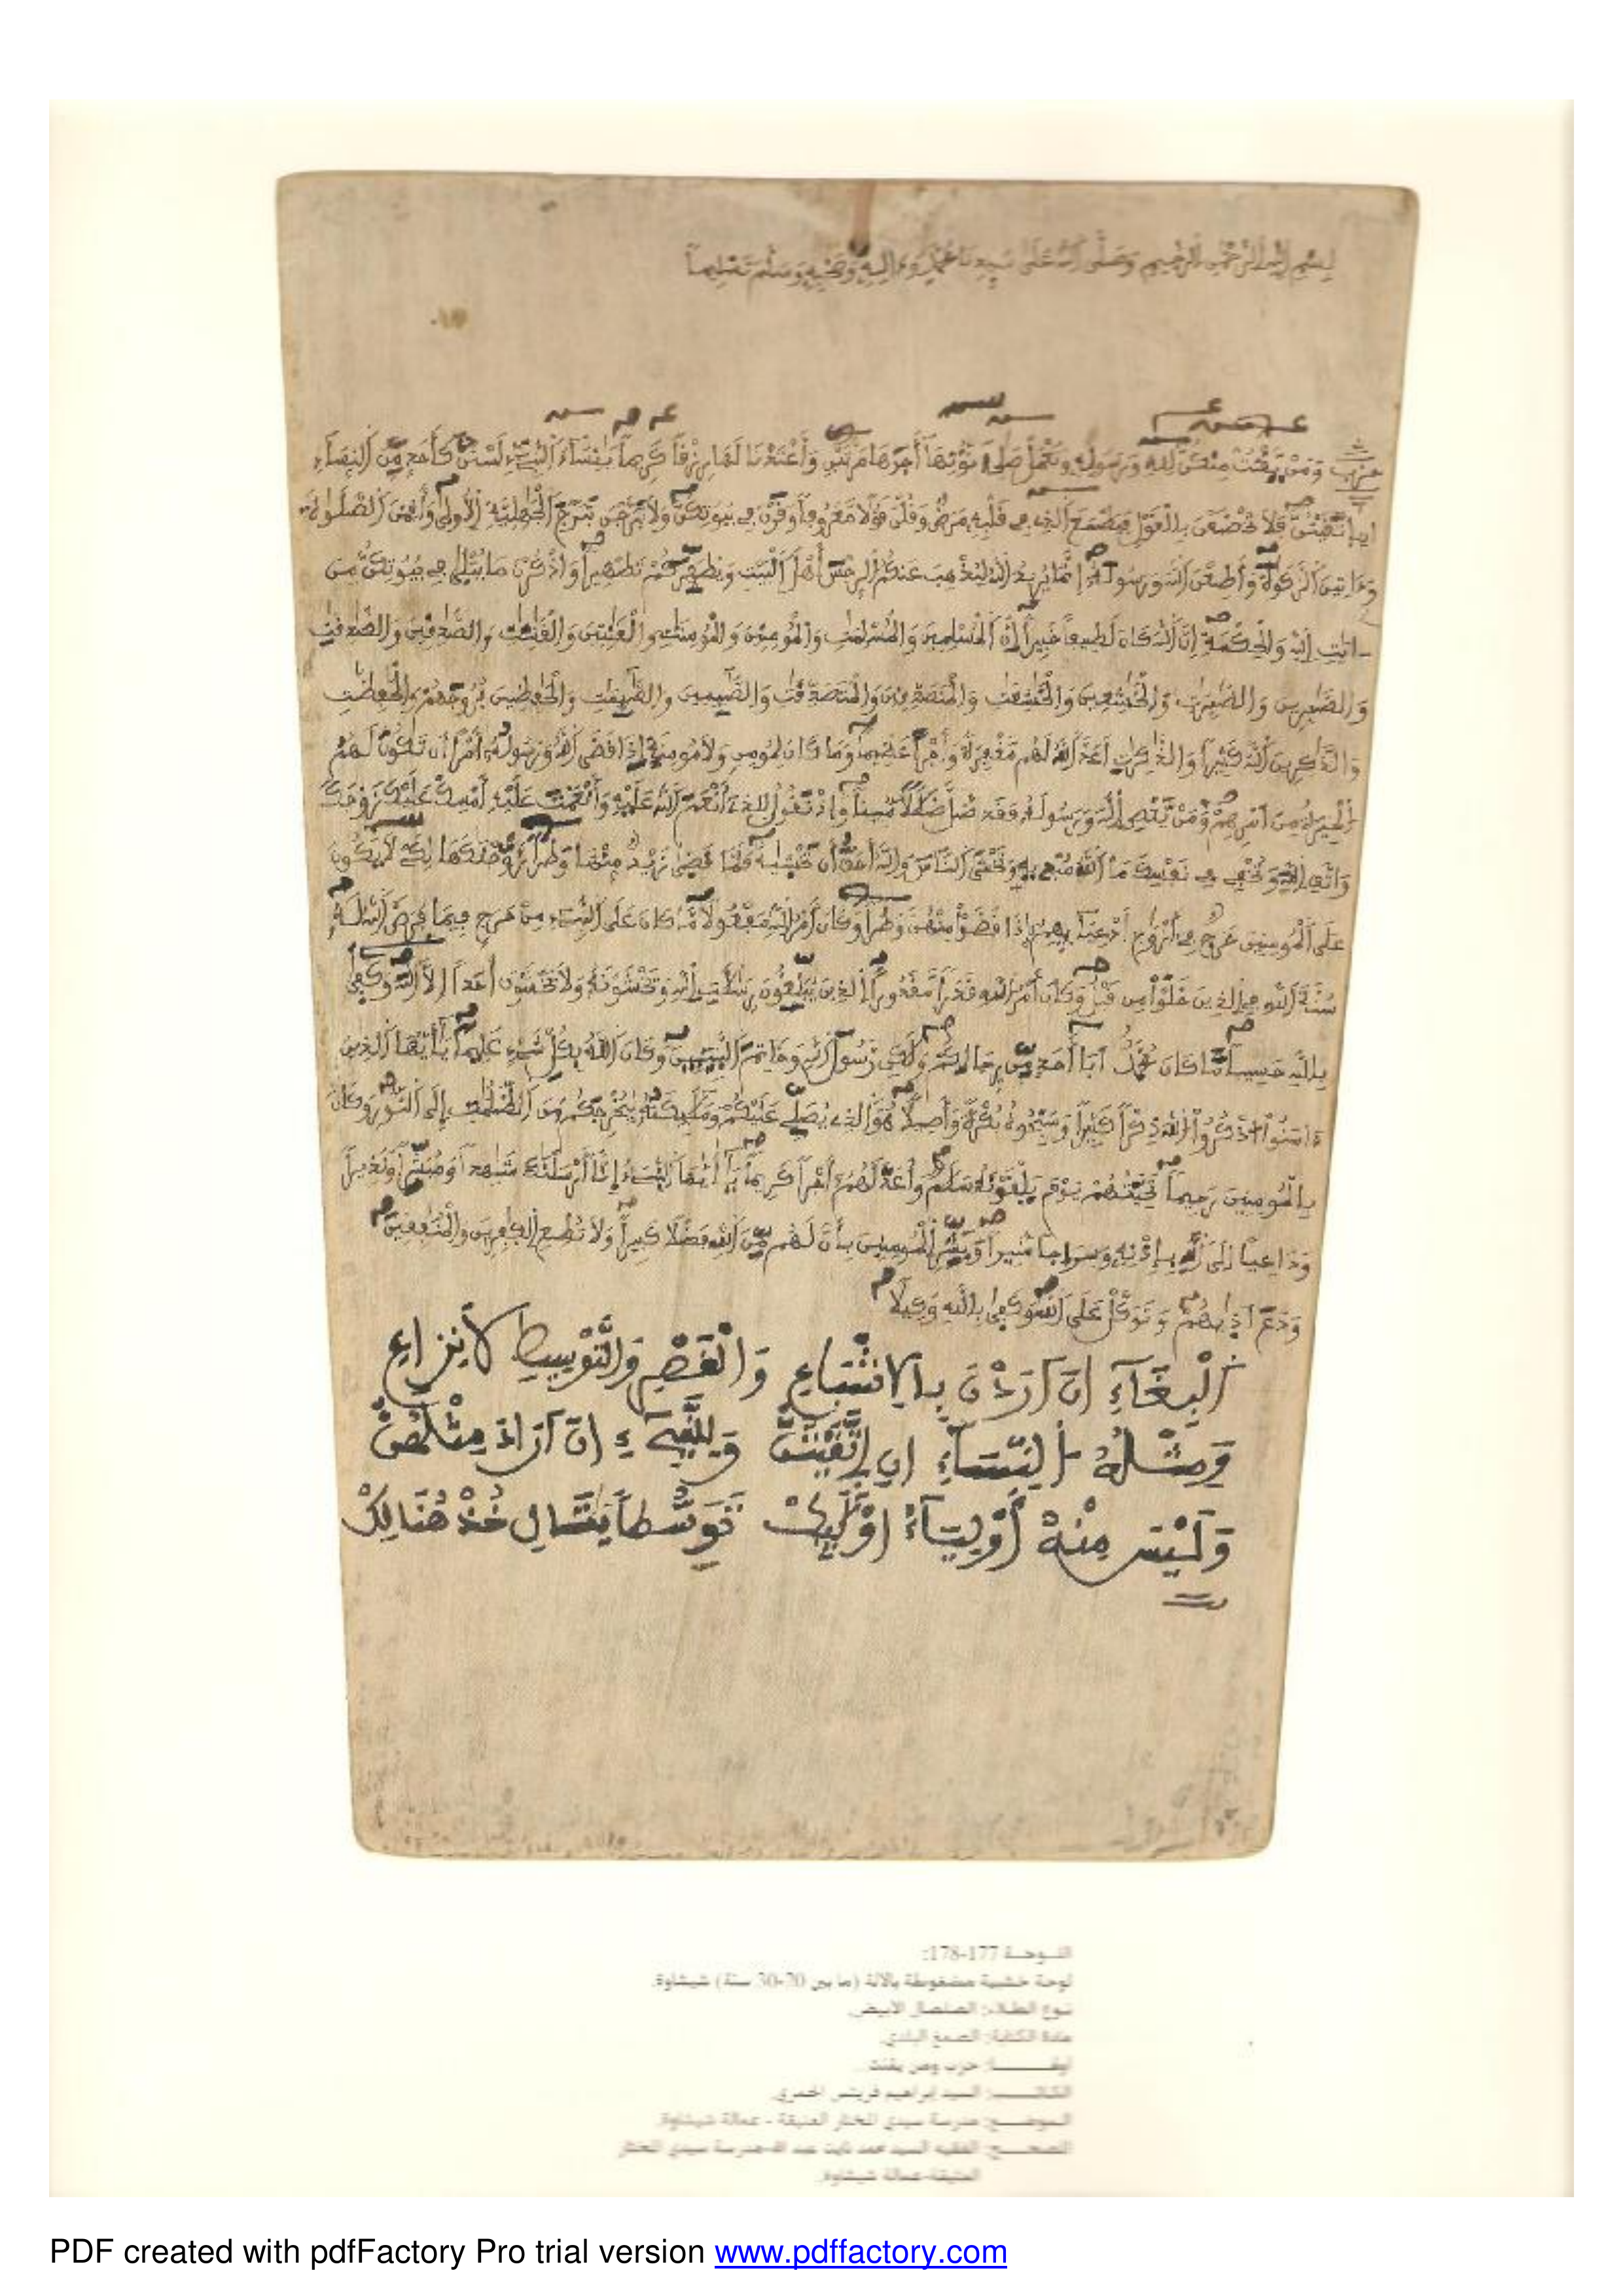 بسم الله الرحمن الرحيم وصلى الله على سيدنا محمد وءاله وصحبه وسلم تسليما
حزب وَمَنْ يَّقْنُتْ مِنكُنَّ لِلهِ وَرَسُولِهِ وَتَعْمَلْ صَلِحا نُّوتِهَا أَجْرَهَا مَرَّتَيْنِ وَأَعْتَدْنَا لَهَا رِزْقا كَرِيما يَنِسَاءَ النَّبِيءِ لَسْتُنَّ كَأَحَدٍ مِّنَ النِّسَاءِ
اِنِ اتَّقَيْتُنَّ فَلاَ تَخْضَعْنَ بِالْقَوْلِ فَيَطْمَعَ الذِي فِي قَلْبِهِ مَرَضٌ وَقُلْنَ قَوْلا مَّعْرُوفا وَقَرْنَ فِي بُيُوتِكُنَّ وَلاَ تَبَرَّجْنَ تَبَرُّجَ الْجَهِلِيَّةِ الاُولَى وَأَقِمْنَ الصَّلَوةَ
وَءَاتِينَ الزَّكَوةَ وَأَطِعْنَ اللهَ وَرَسُولَهُ إِنَّمَا يُرِيدُ اللهُ لِيُذْهِبَ عَنكُمُ الرِّجْسَ أَهْلَ الْبَيْتِ وَيُطَهِّرَكُمْ تَطْهِيرا وَاذْكُرْنَ مَا يُتْلَى فِي بُيُوتِكُنَّ مِنَ
ايَتِ اللهِ وَالْحِكْمَةِ إِنَّ اللهَ كَانَ لَطِيفا خَبِيرا اِنَّ الْمُسْلِمِينَ وَالْمُسْلِمَتِ وَالْمُومِنِينَ وَالْمُومِنَتِ وَالْقَنِتِينَ وَالْقَنِتَتِ وَالصَّدِقِينَ وَالصَّدِقَتِ
وَالصَّبِرِينَ وَالصَّبِرَتِ وَالْخَشِعِينَ وَالْخَشِعَتِ وَالْمُتَصَدِّقِينَ وَالْمُتَصَدِّقَتِ وَالصَّئِمِينَ وَالصَّئِمَتِ وَالْحَفِظِينَ فُرُوجَهُمْ وَالْحَفِظَتِ
وَالذَّكِرِينَ اللهَ كَثِيرا وَالذَّكِرَتِ أَعَدَّ اللهُ لَهُم مَّغْفِرَةً وَأَجْراً عَظِيما وَمَا كَانَ لِمُومِنٍ وَلاَ مُومِنَةٍ إِذَا قَضَى اللهُ وَرَسُولُهُ أَمْراً أَن تَكُونَ لَهُمُ
الْخِيَرَةُ مِنَ اَمْرِهِمْ وَمَنْ يَّعْصِ اللهَ وَرَسُولَهُ فَقَد ضَّلَّ ضَلَلا مُّبِينا وَإِذْ تَقُولُ لِلذِي أَنْعَمَ اللهُ عَلَيْهِ وَأَنْعَمْتَ عَلَيْهِ أَمْسِكْ عَلَيْكَ زَوْجَكَ
وَاتَّقِ اللهَ وَتُخْفِي فِي نَفْسِكَ مَا اللهُ مُبْدِيهِ وَتَخْشَى النَّاسَ وَاللهُ أَحَقُّ أَن تَخْشَيهُ فَلَمَّا قَضَى زَيْدٌ مِّنْهَا وَطَرا زَوَّجْنَكَهَا لِكَيْ لاَ يَكُونَ
عَلَى الْمُومِنِينَ حَرَجٌ فِي أَزْوَجِ أَدْعِيَائِهِمُ إِذَا قَضَوْا مِنْهُنَّ وَطَرا وَكَانَ أَمْرُ اللهِ مَفْعُولا مَّا كَانَ عَلَى النَّبِيءِ مِنْ حَرَجٍ فِيمَا فَرَضَ اللهُ لَهُ
سُنَّةَ اللهِ فِي الذِينَ خَلَوْا مِن قَبْلُ وَكَانَ أَمْرُ اللهِ قَدَرا مَّقْدُورا الذِينَ يُبَلِّغُونَ رِسَلَتِ اللهِ وَيَخْشَوْنَهُ وَلاَ يَخْشَوْنَ أَحَداً اِلاَّ اللهَ وَكَفَى
بِاللهِ حَسِيبا مَّا كَانَ مُحَمَّدٌ اَبَا أَحَدٍ مِّن رِّجَالِكُمْ وَلَكِن رَّسُولَ اللهِ وَخَاتِمَ النَّبِيئِينَ وَكَانَ اللهُ بِكُلِّ شَيْءٍ عَلِيما يَأَيُّهَا الذِينَ
ءَامَنُوا اذْكُرُوا اللهَ ذِكْرا كَثِيرا وَسَبِّحُوهُ بُكْرَةً وَأَصِيلا هُوَ الذِي يُصَلِّي عَلَيْكُمْ وَمَلَئِكَتُهُ لِيُخْرِجَكُم مِّنَ الظُّلُمَتِ إِلَى النُّورِ وَكَانَ
بِالْمُومِنِينَ رَحِيما تَحِيَّتُهُمْ يَوْمَ يَلْقَوْنَهُ سَلَمٌ وَأَعَدَّ لَهُمُ أَجْرا كَرِيما يَأَيُّهَا النَّبِيءُ إِنَّا أَرْسَلْنَكَ شَهِدا وَمُبَشِّرا وَنَذِيرا
وَدَاعِياً اِلَى اللهِ بِإِذْنِهِ وَسِرَاجا مُّنِيرا وَبَشِّرِ الْمُومِنِينَ بِأَنَّ لَهُم مِّنَ اللهِ فَضْلا كَبِيرا وَلاَ تُطِعِ الْكَفِرِينَ وَالْمُنَفِقِينَ
وَدَعَ اَذَيهُمْ وَتَوَكَّلْ عَلَى اللهِ وَكَفَى بِاللهِ وَكِيلا
اَلْبِغَآءِ انَ ارَدْنَ بِالاشْبَاعِ وَالْقَصْرِ وَالتَّوْسِيطِ لاَ نِزَاعِ
وَمِثْلُهُ النِّسَآءِ انِ اِتَّقَيْتُنَّ وَلِلنَّبِيءِ انَ ارَادَ مِثْلُهُنْ
وَلَيْسَ مِنْهُ أَوْلِيَآءُ اوْلَئِكْ تَوَسُّطاً خُذْ هُنَالِكْ
اللوحة 177-178:
لوحة خشبية مضغوطة بالآلة (ما بين 20-30 سنة) شيشاوة.
نوع الطلاء: الصلصال الأبيض.
مادة الكتابة: الصمغ البلدي.
حزب ومن يقنت
الكاتب: السيد إبراهيم
الموضع: مدرسة سيدي المختار العتيقة - عمالة شيشاوة.
المصحح: الفقيه السيد محمد عبد الله-مدرسة سيدي المختار
العتيقة-عمالة شيشاوة.
PDF created with pdfFactory Pro trial version www.pdffactory.com